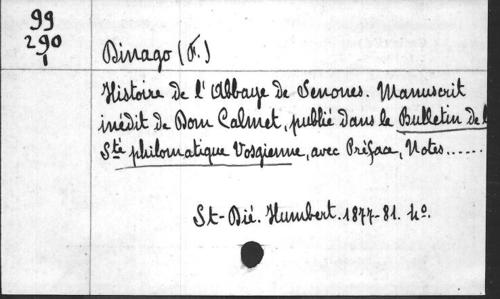 99
290
1
Dinago (F.)
Histoire de l'Abbaye de Senones. Manuscrit
inédit de Dom Calmet, publié dans le Bulletin de l
Sté philomatique Vosgienne, avec Préface, Notes......
St-Dié. Humbert. 1877-81. 4o.